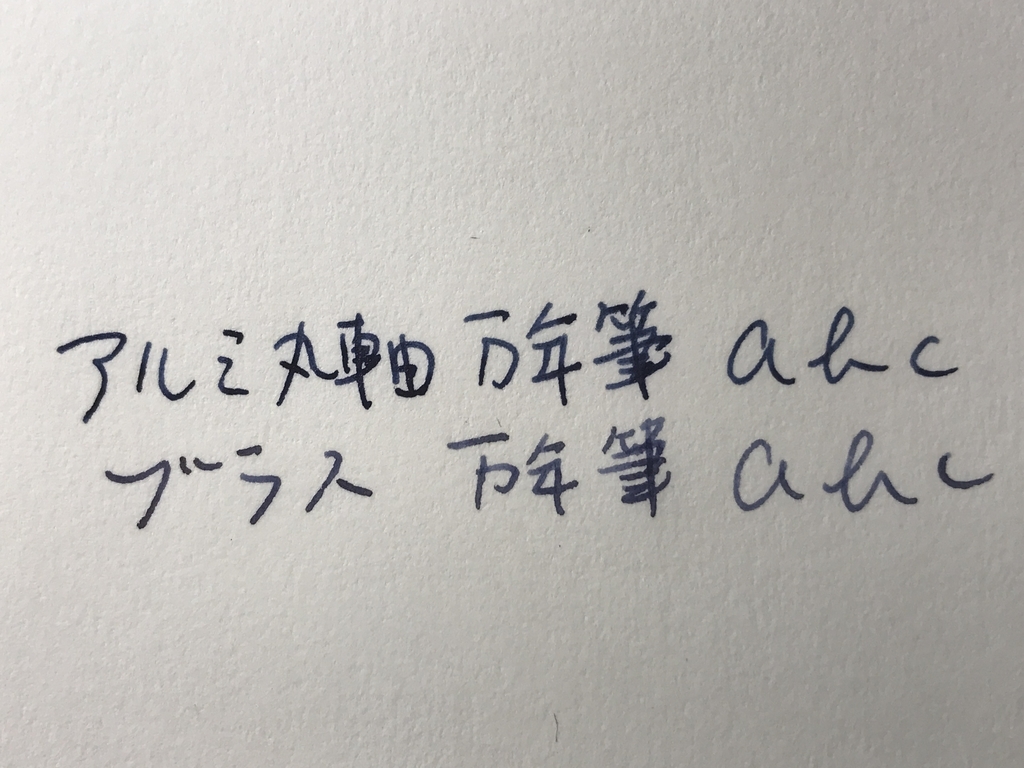 アルミ丸軸 万年筆 abc
ブラス 万年筆 abc